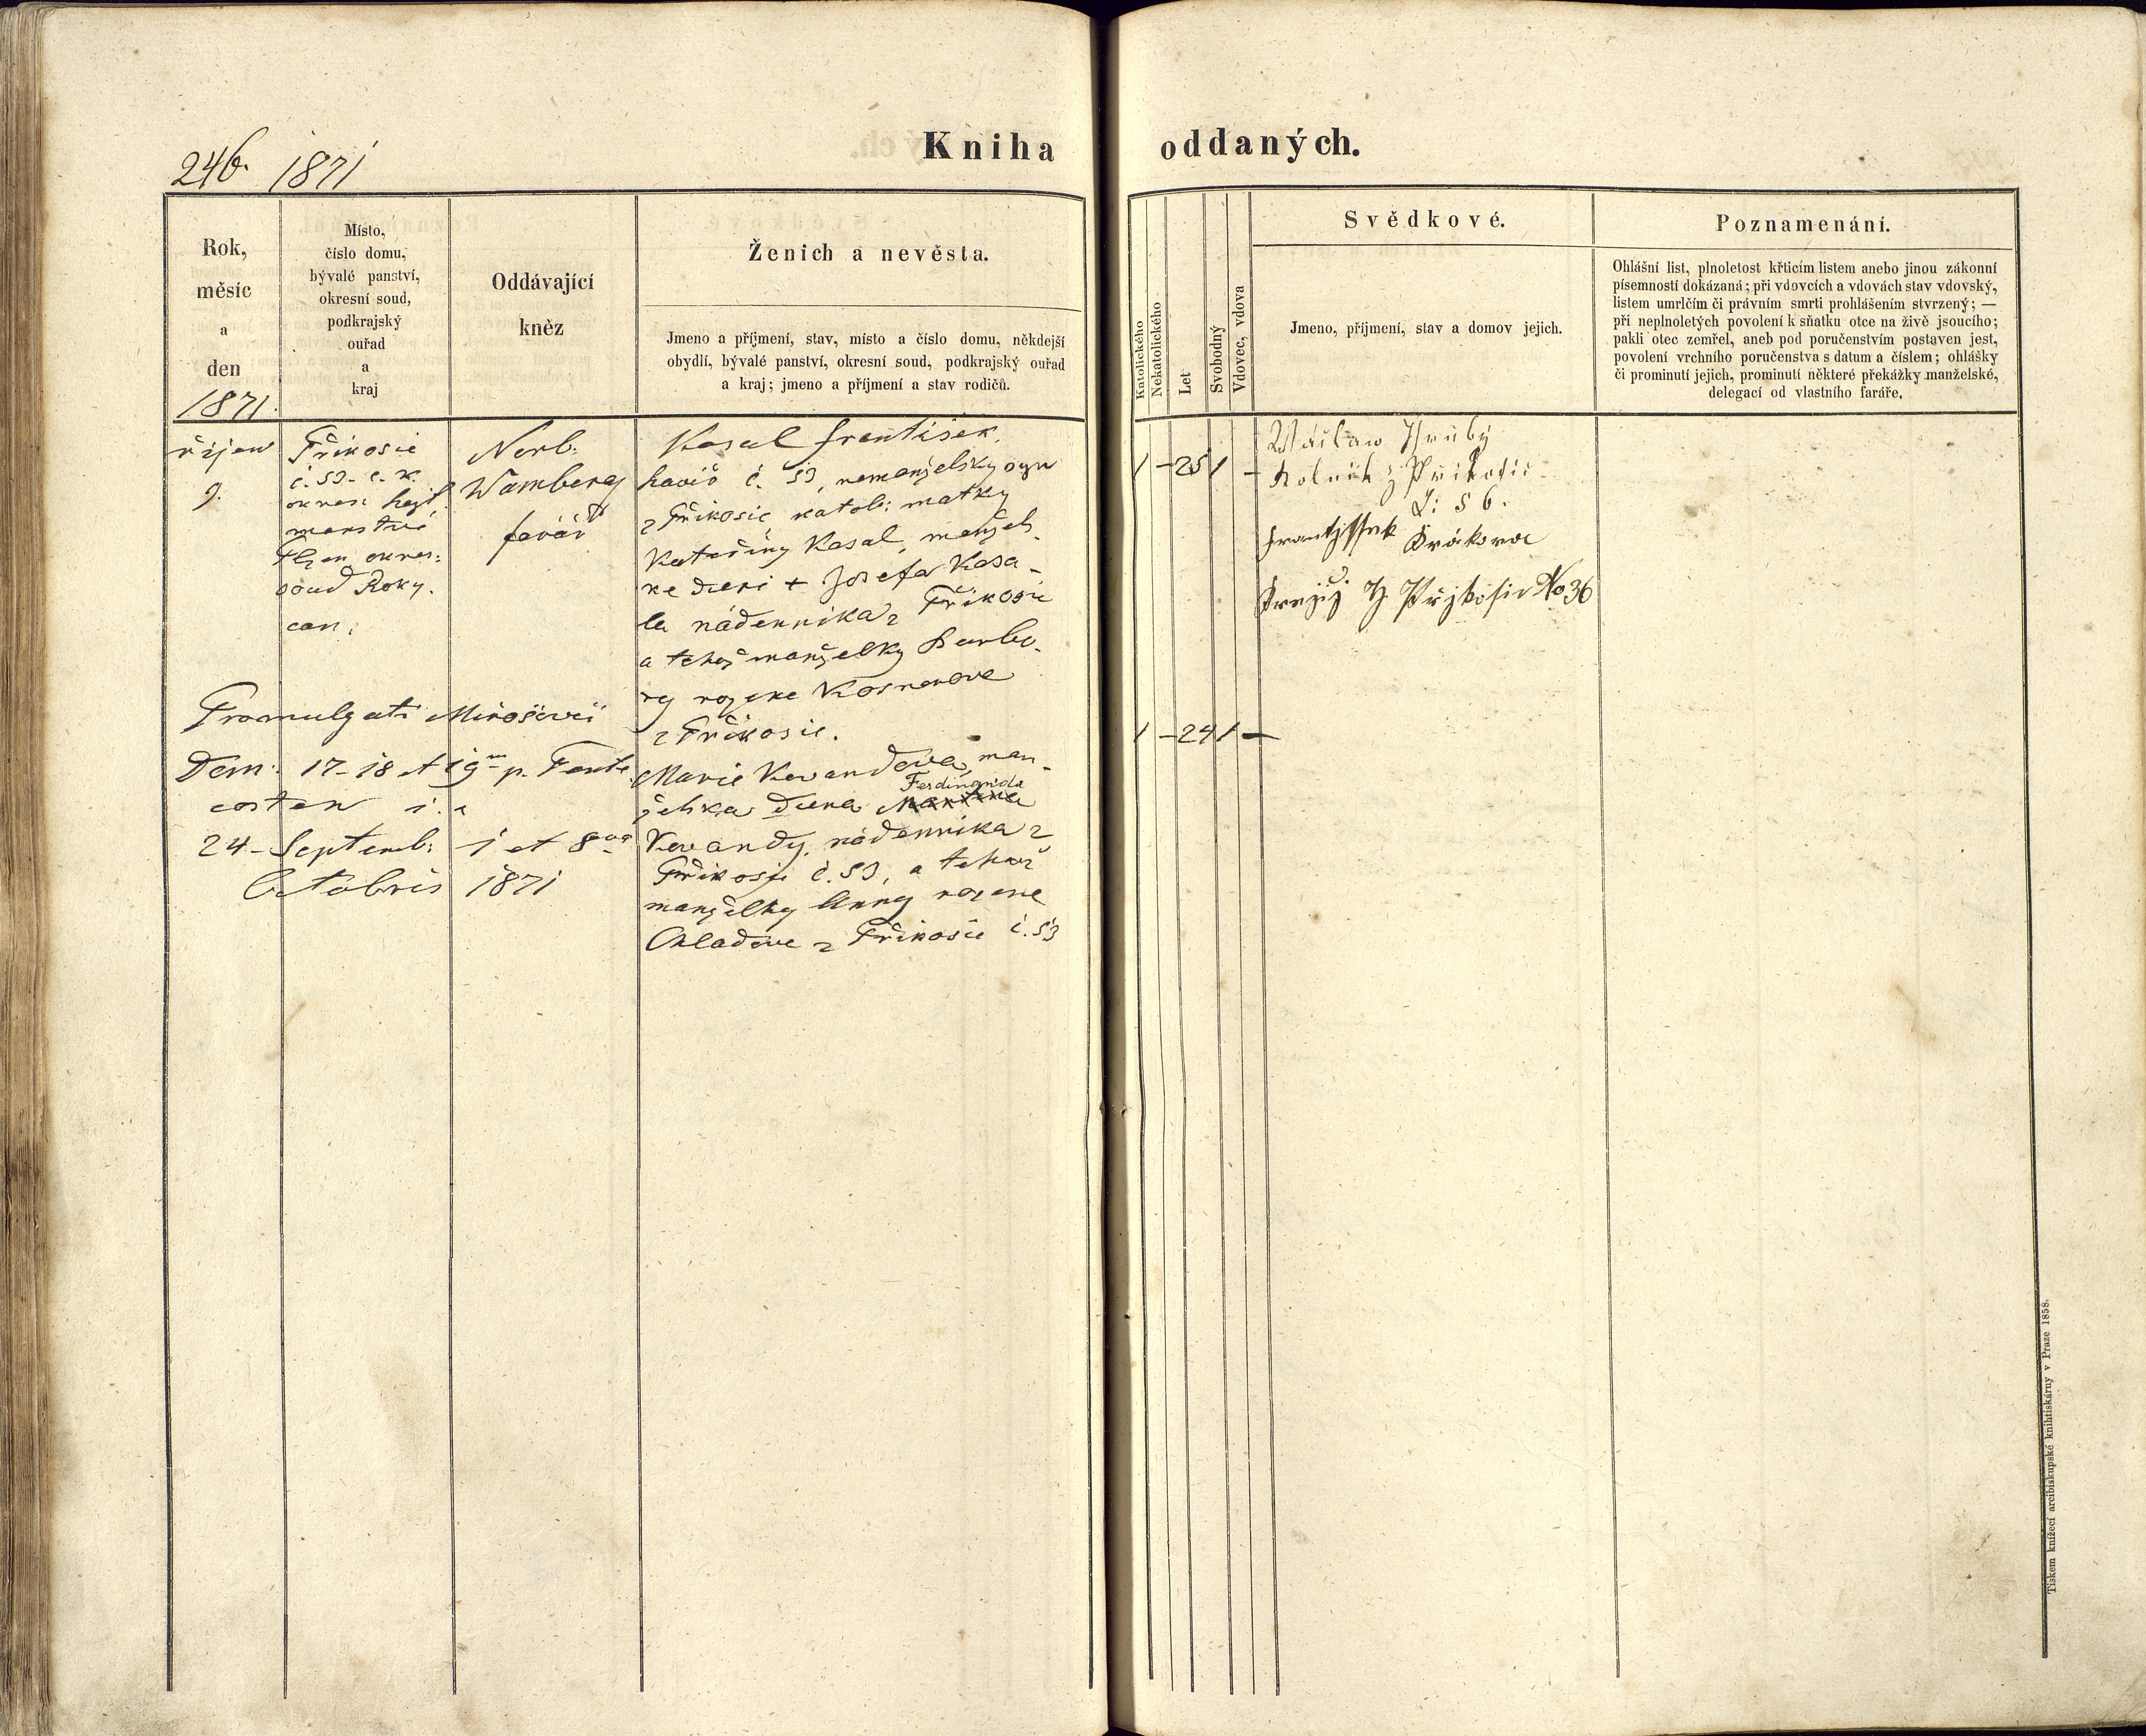 246. 1871
Kniha oddaných.
Rok,
měsíc
a
den
1871.
Místo,
číslo domu,
bývalé panství,
okresní soud,
podkrajský
ouřad
a
kraj
Oddávající
kněz
Ženich a nevěsta.
Jmeno a příjmení, stav, místo a číslo domu, někdejší
obydlí, bývalé panství, okresní soud, podkrajský ouřad
a kraj; jmeno a příjmení a stav rodičů.
říjen
9.
Příkosic
č. 53 - c. k.
okresn. hejt-
manství
Plzen okres:
soud Roky.
can.
Norb.
Wamberg
farář
Kasal František,
havíř č. 53, nemanželský syn
z Příkosic, katol: matky
Kateřiny Kasal, manžels-
ke dceri + Josefa Kasa-
la nádenníka z Příkosic
a tehož manželky Barbo-
ry rozene
z Příkosic.
Promulgati Mirošovii
Dom: 17 - 18 et 19 p. Pente
costen i. e
24 - Septemb: 1 et 8
Octobris 1871
Marie Kovandova, man-
želska dcera Ferdinanda
Kovandy, nádenníka z
Příkosic č. 53, a tehož
manželky Anny rozene
z Příkosic č. 53
Katolického
Nekatolického
Let
Svobodný
Vdovec, vdova
Svědkové.
Jmeno, příjmení, stav a domov jejich.
Poznamenání.
Ohlášní list, plnoletost křticím listem anebo jinou zákonní
písemností dokázaná; při vdovcích a vdovách stav vdovský,
listem umrlčím či právním smrti prohlášením stvrzený; —
při neplnoletých povolení k sňatku otce na živě jsoucího;
pakli otec zemřel, aneb pod poručenstvím postaven jest,
povolení vrchního poručenstva s datum a číslem; ohlášky
či prominutí jejich, prominutí některé překážky manželské,
delegací od vlastního faráře.
1 - 25 1 -
Wáclaw Hrubý
Rolník z Příkosic
Č: 56.
Frantissek
Krejčý z Přjkosic No 36
1 - 24 1 -
Tiskem knížecí arcibiskupské knihtiskárny v Praze 1858.